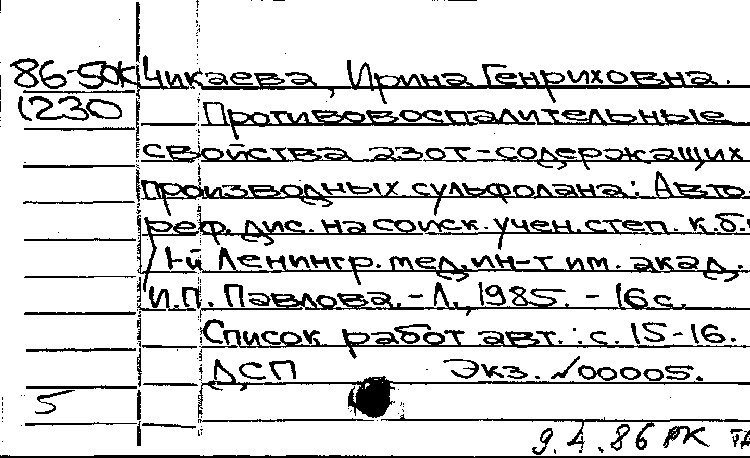 86-50к Чикаева, Ирина Генриховна.
1230 Противовоспалительные
свойства азот-содержащих
производных сульфолана: Авто-
реф. дис. на соиск. учен. степ. к.б.н
/ 1-й Ленингр. мед. ин-т им. акад.
И.П. Павлова. - Л., 1985. - 16 с.
Список работ авт.: с. 15-16.
ДСП Экз. №00005.
5
9.4.86 РК